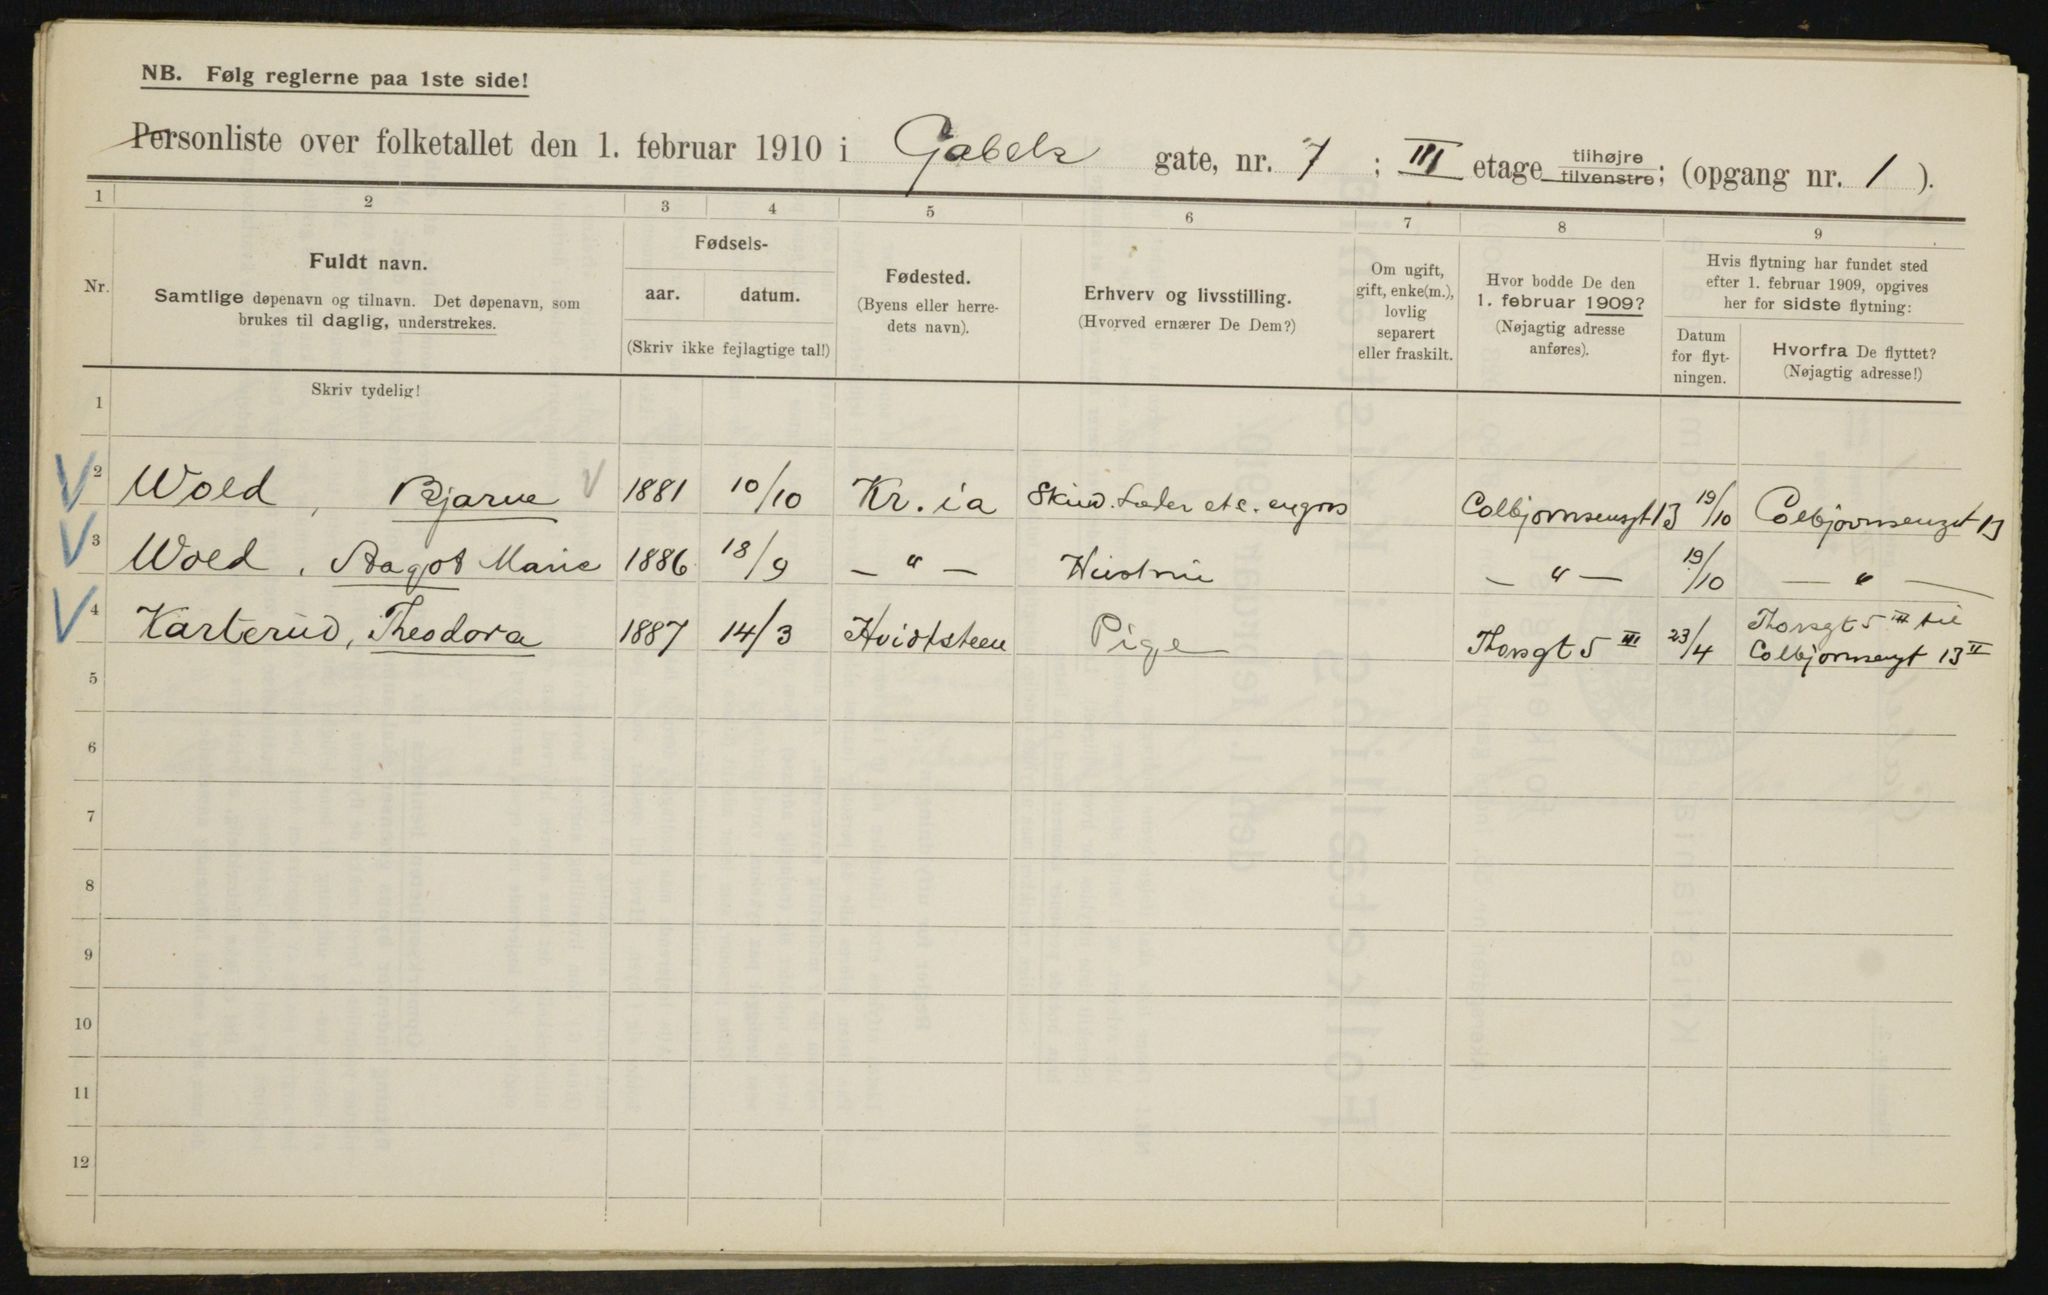 NB. Følg reglerne paa 1ste side!
Personliste over folketallet den 1. februar 1910 i Gabels gate, nr. 7 ; III etage tilhøjre tilvenstre; (opgang nr. 1 ).
1 2 3 4 5 6 7 8 9
Nr.
Fuldt navn.
Samtlige døpenavn og tilnavn. Det døpenavn, som
brukes til daglig, understrekes.
Fødsels-
aar. datum.
(Skriv ikke fejlagtige tal!)
Fødested.
(Byens eller herre-
dets navn).
Erhverv og livsstilling.
(Hvorved ernærer De Dem?)
Om ugift,
gift, enke(m.),
lovlig
separert
eller fraskilt.
Hvor bodde De den
1. februar 1909?
(Nøjagtig adresse
anføres).
Hvis flytning har fundet sted
efter 1. februar 1909, opgives
her for sidste flytning:
Datum
for flyt-
ningen.
Hvorfra De flyttet?
(Nøjagtig adresse!)
Skriv tydelig!
1
2 Wold, Bjarne 1881 10/10 Kr.ia Skind. Læder etc. engros Colbjornsensgt 13 19/10 Colbjornsensgt 13
3 Wold, Aagot Marie 1886 18/9 — " — Hustru — " — 19/10 — " —
4 Karterud, Theodora 1887 14/3 Hvidtsteen Pige Thorsgt 5 III 23/4 Thorsgt 5 III til
Colbjornsensgt 13 II
5
6
7
8
9
10
11
12